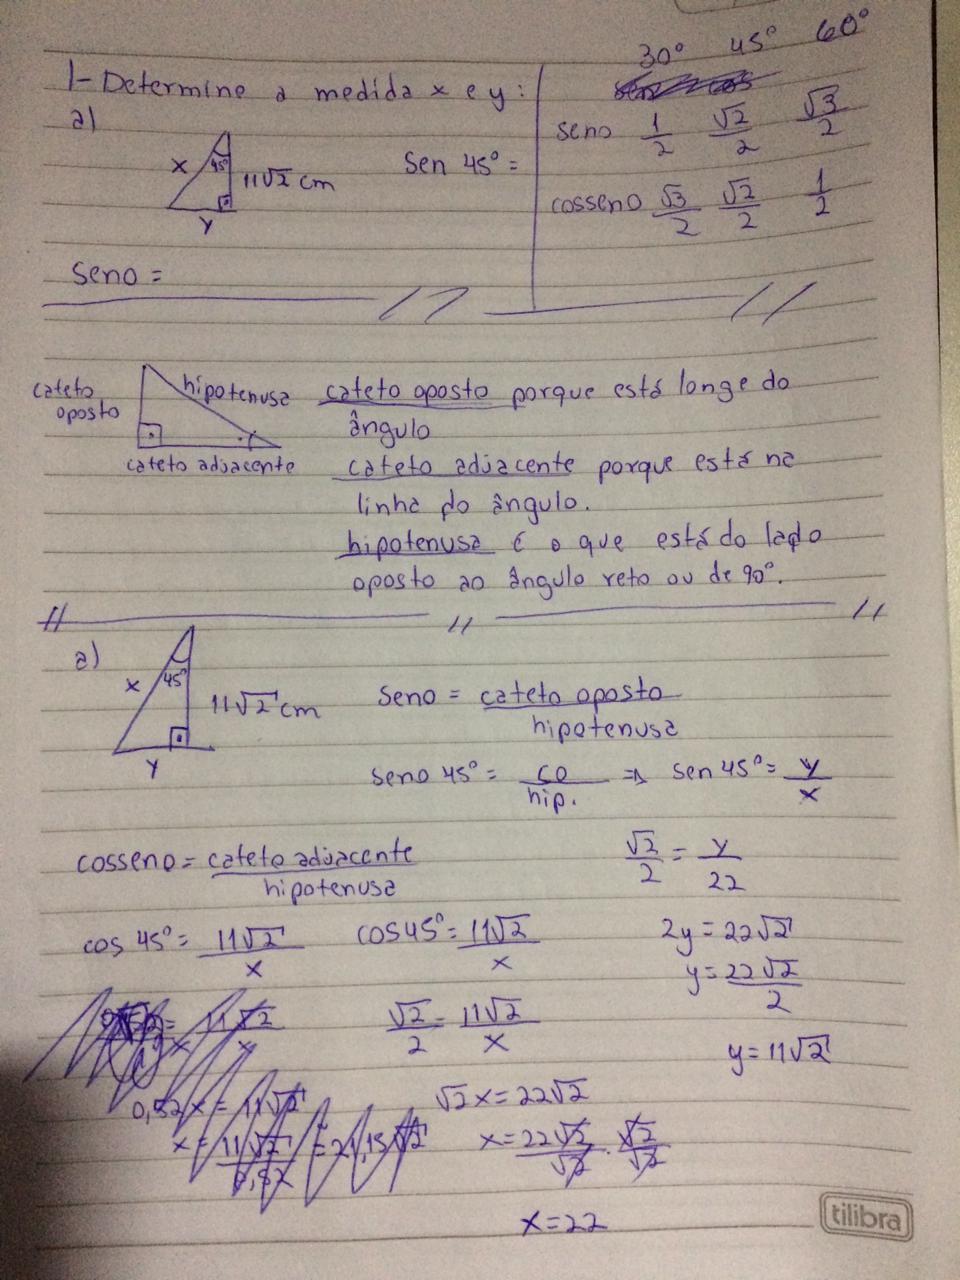 30° 45° 60°
1- Determine a medida x e y:
a)
seno 1/2 √2/2 √3/2
x 45° 11√2 cm
y
Sen 45° =
cosseno √3/2 √2/2 1/2
seno =
cateto oposto
hipotenusa
cateto adjacente
cateto oposto porque está longe do
ângulo
cateto adjacente porque está na
linha do ângulo.
hipotenusa é o que está do lado
oposto ao ângulo reto ou de 90°.
a)
x 45° 11√2 cm
y
seno = cateto oposto/hipotenusa
seno 45° = co/hip. ⇒ sen 45° = y/x
cosseno = cateto adjacente/hipotenusa
√2/2 = y/22
cos 45° = 11√2/x
cos 45° = 11√2/x
2y = 22√2
y = 22√2/2
√2/2 = 11√2/x
y = 11√2
0,52x = 11√2
√2x = 22√2
x = 22√2/√2 . √2/√2
x = 22
tilibra